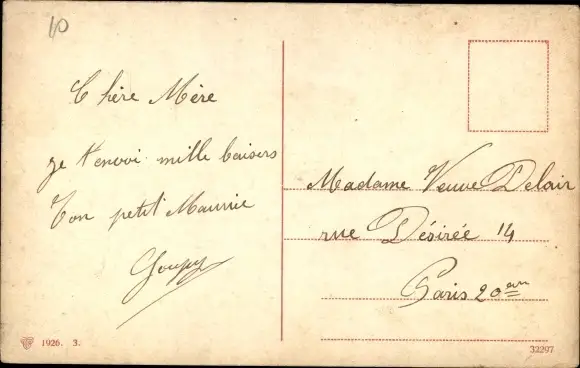 10
Chère Mère
je t'envoi mille baisers
Ton petit Maurice
Goupy
Madame Veuve Delair
rue Désirée 14
Paris 20em
1926. 3.
32297